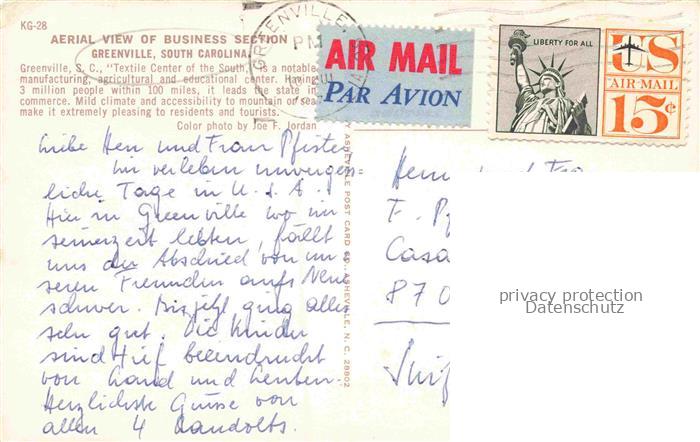 KG-28
AERIAL VIEW OF BUSINESS SECTION
GREENVILLE, SOUTH CAROLINA
Greenville, S. C., "Textile Center of the South," is a notable
manufacturing, agricultural and educational center. Having
3 million people within 100 miles, it leads the state in
commerce. Mild climate and accessibility to mountain or sea
make it extremely pleasing to residents and tourists.
Color photo by Joe F. Jordan
GREENVILLE,
PM
AIR MAIL
PAR AVION
LIBERTY FOR ALL
US
AIR MAIL
15¢
Liebe Herr und Frau Pfister
Wir verleben unvergess=
liche Tage in U.S.A.
Hier in Greenville wo wir
seinerzeit lebten, fällt
uns der Abschied von un
seren Freunden aufs Neue
schwer. Bis jetzt ging alles
sehr gut. Die Kinder
sind tief beeindruckt
von Land und Leuten.
Herzlichste Grüsse von
allen 4 Randolts.
ASHEVILLE POST CARD CO., ASHEVILLE, N. C. 28802
Herr und Fra
F. Pf
Casa
870
privacy protection
Datenschutz